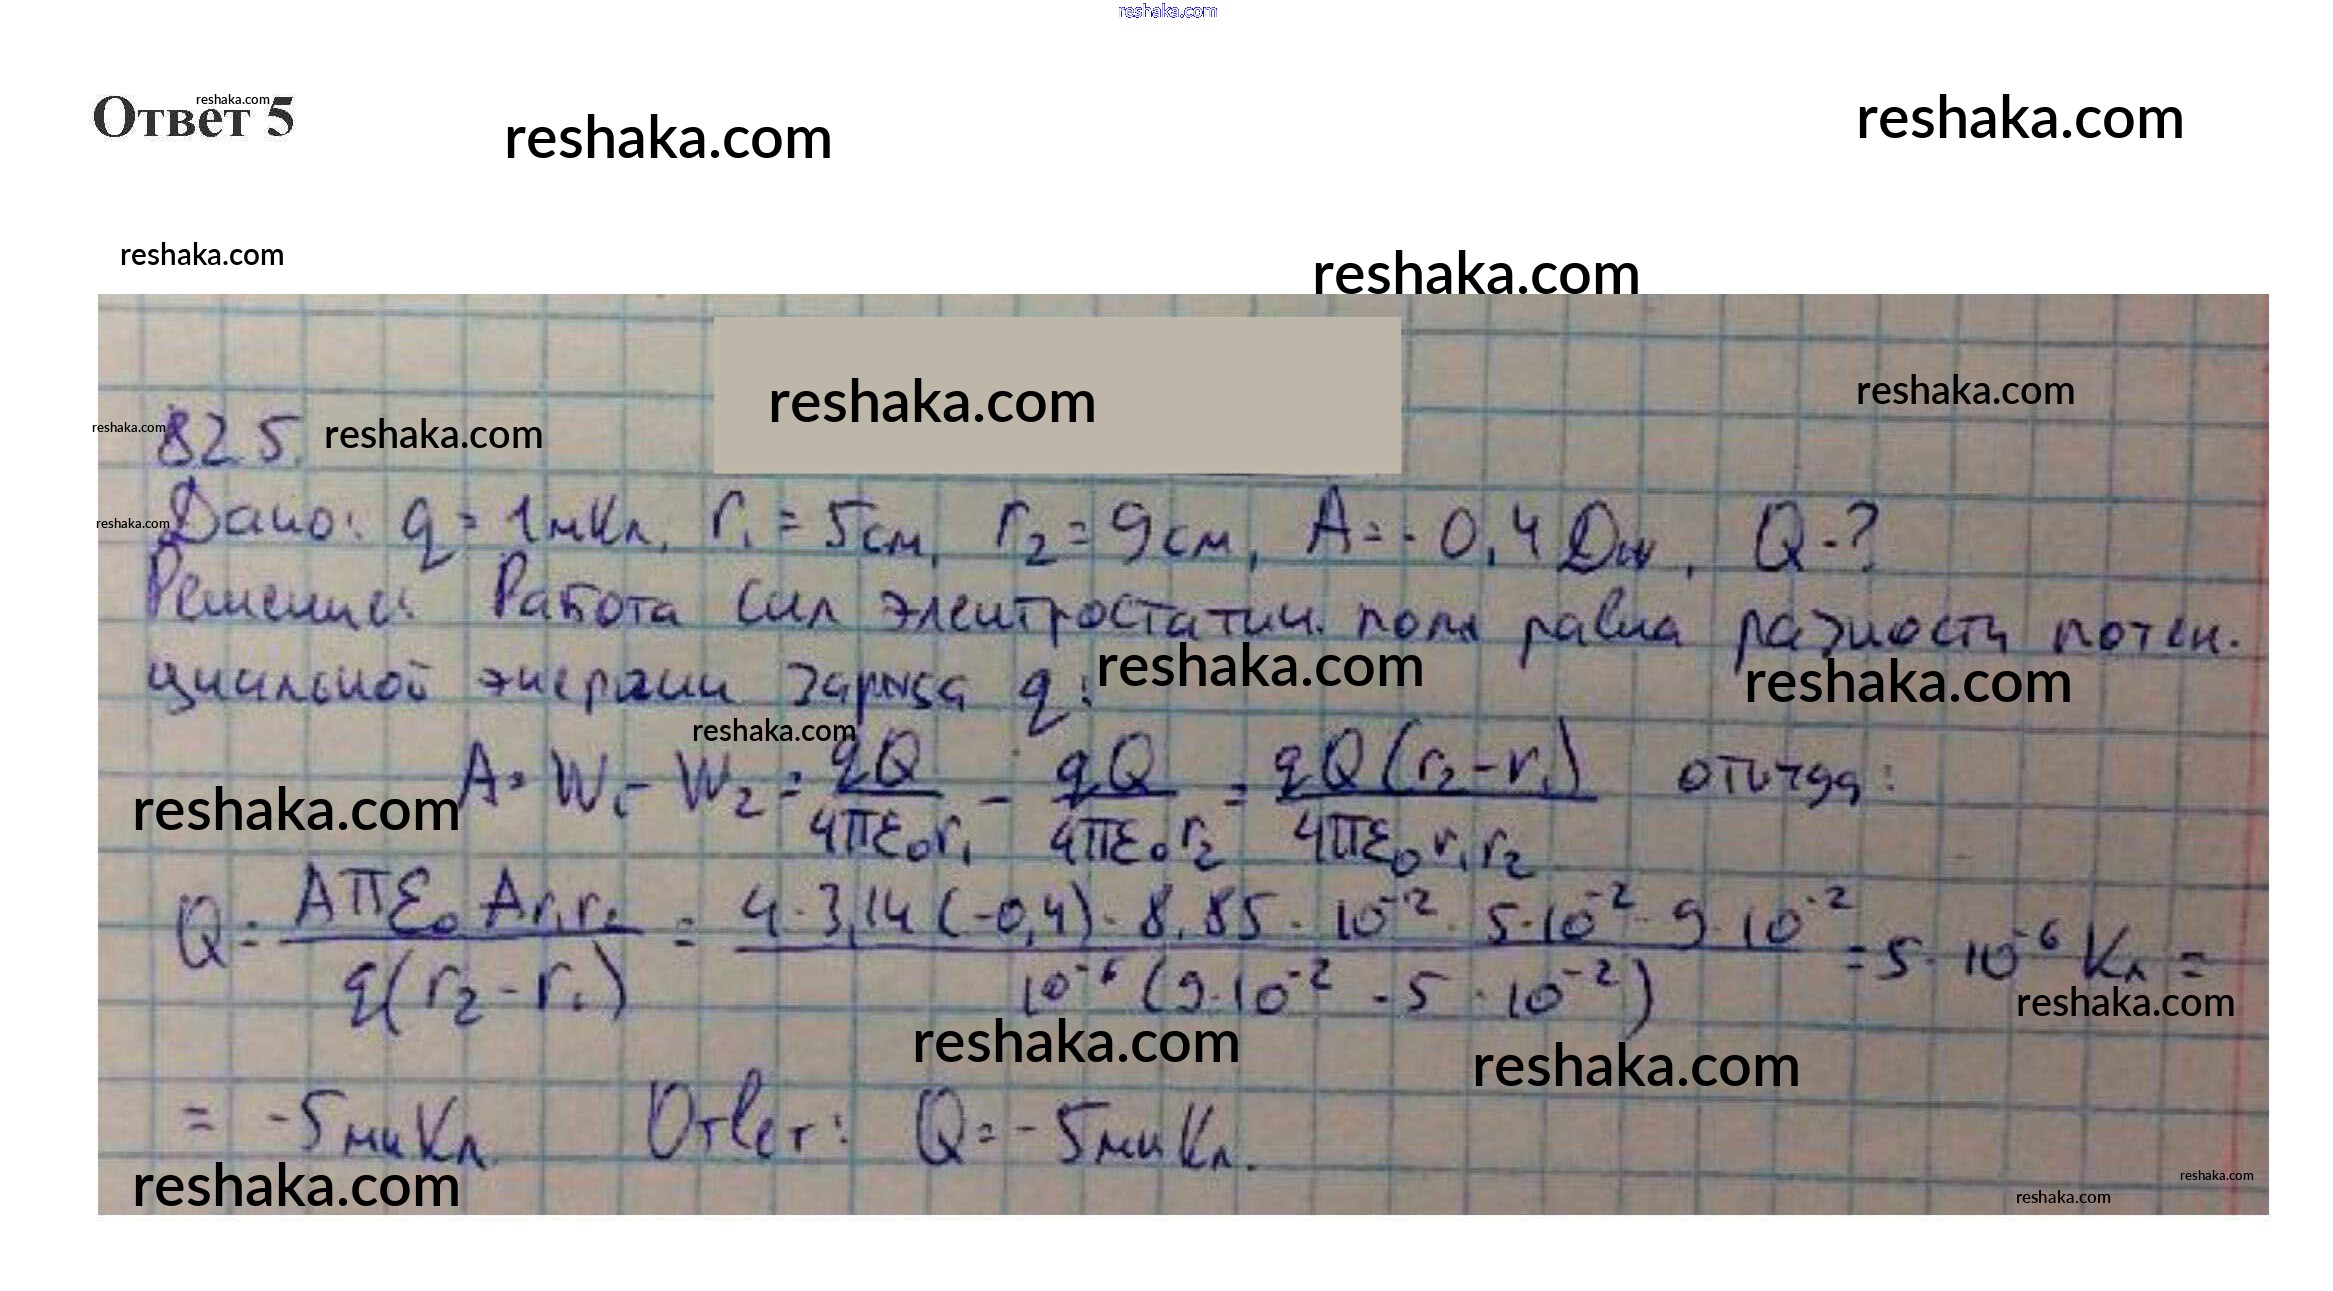 reshaka.com
Ответ 5
reshaka.com
reshaka.com
reshaka.com
reshaka.com
reshaka.com
reshaka.com
reshaka.com
82.5.
reshaka.com
reshaka.com
reshaka.com
Дано: q = 1мкКл, r₁ = 5см, r₂ = 9см, A = -0,4 Дж, Q - ?
Решение: Работа сил электростатич. поля равна разности потен.
циальной энергии заряда q:
reshaka.com
reshaka.com
reshaka.com
A = W₁ - W₂ = qQ/4πε₀r₁ - qQ/4πε₀r₂ = qQ(r₂-r₁)/4πε₀r₁r₂ откуда:
reshaka.com
Q = Aπε₀Ar₁r₂/q(r₂-r₁) = 4·3,14(-0,4)·8,85·10⁻²·5·10⁻²·9·10⁻²/10⁻⁶(9·10⁻²-5·10⁻²) = 5·10⁻⁶Кл =
reshaka.com
reshaka.com
reshaka.com
= -5мкКл. Ответ: Q = -5мкКл.
reshaka.com
reshaka.com
reshaka.com